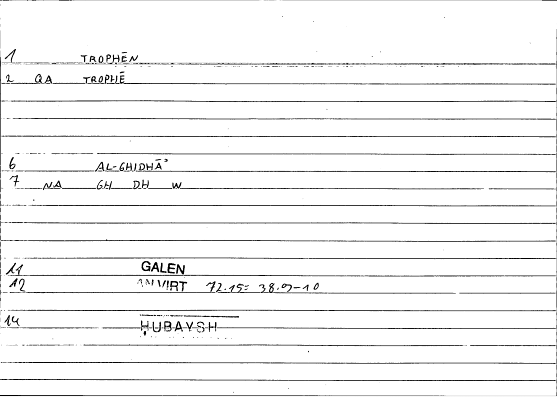 1 TROPHĒN
2 QA TROPHĒ
6 AL-GHIDHĀʾ
7 NA GH DH W
11 GALEN
12 AN VIRT 72.15= 38.9-10
14 ḤUBAYSH